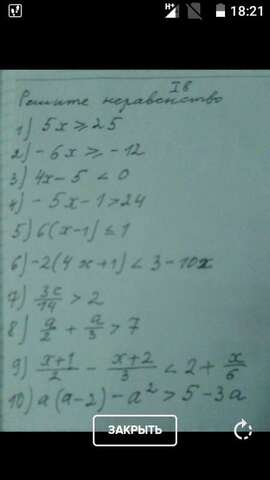 H+ 18:21
I в
Решите неравенство
1) 5x ≥ 25
2) -6x ≥ -12
3) 4x-5 < 0
4) -5x-1 > 24
5) 6(x-1) ≤ 1
6) -2(4x+1) < 3-10x
7) 3c/14 > 2
8) a/2 + a/3 > 7
9) x+1/2 - x+2/3 < 2 + x/6
10) a(a-2) - a² > 5-3a
ЗАКРЫТЬ